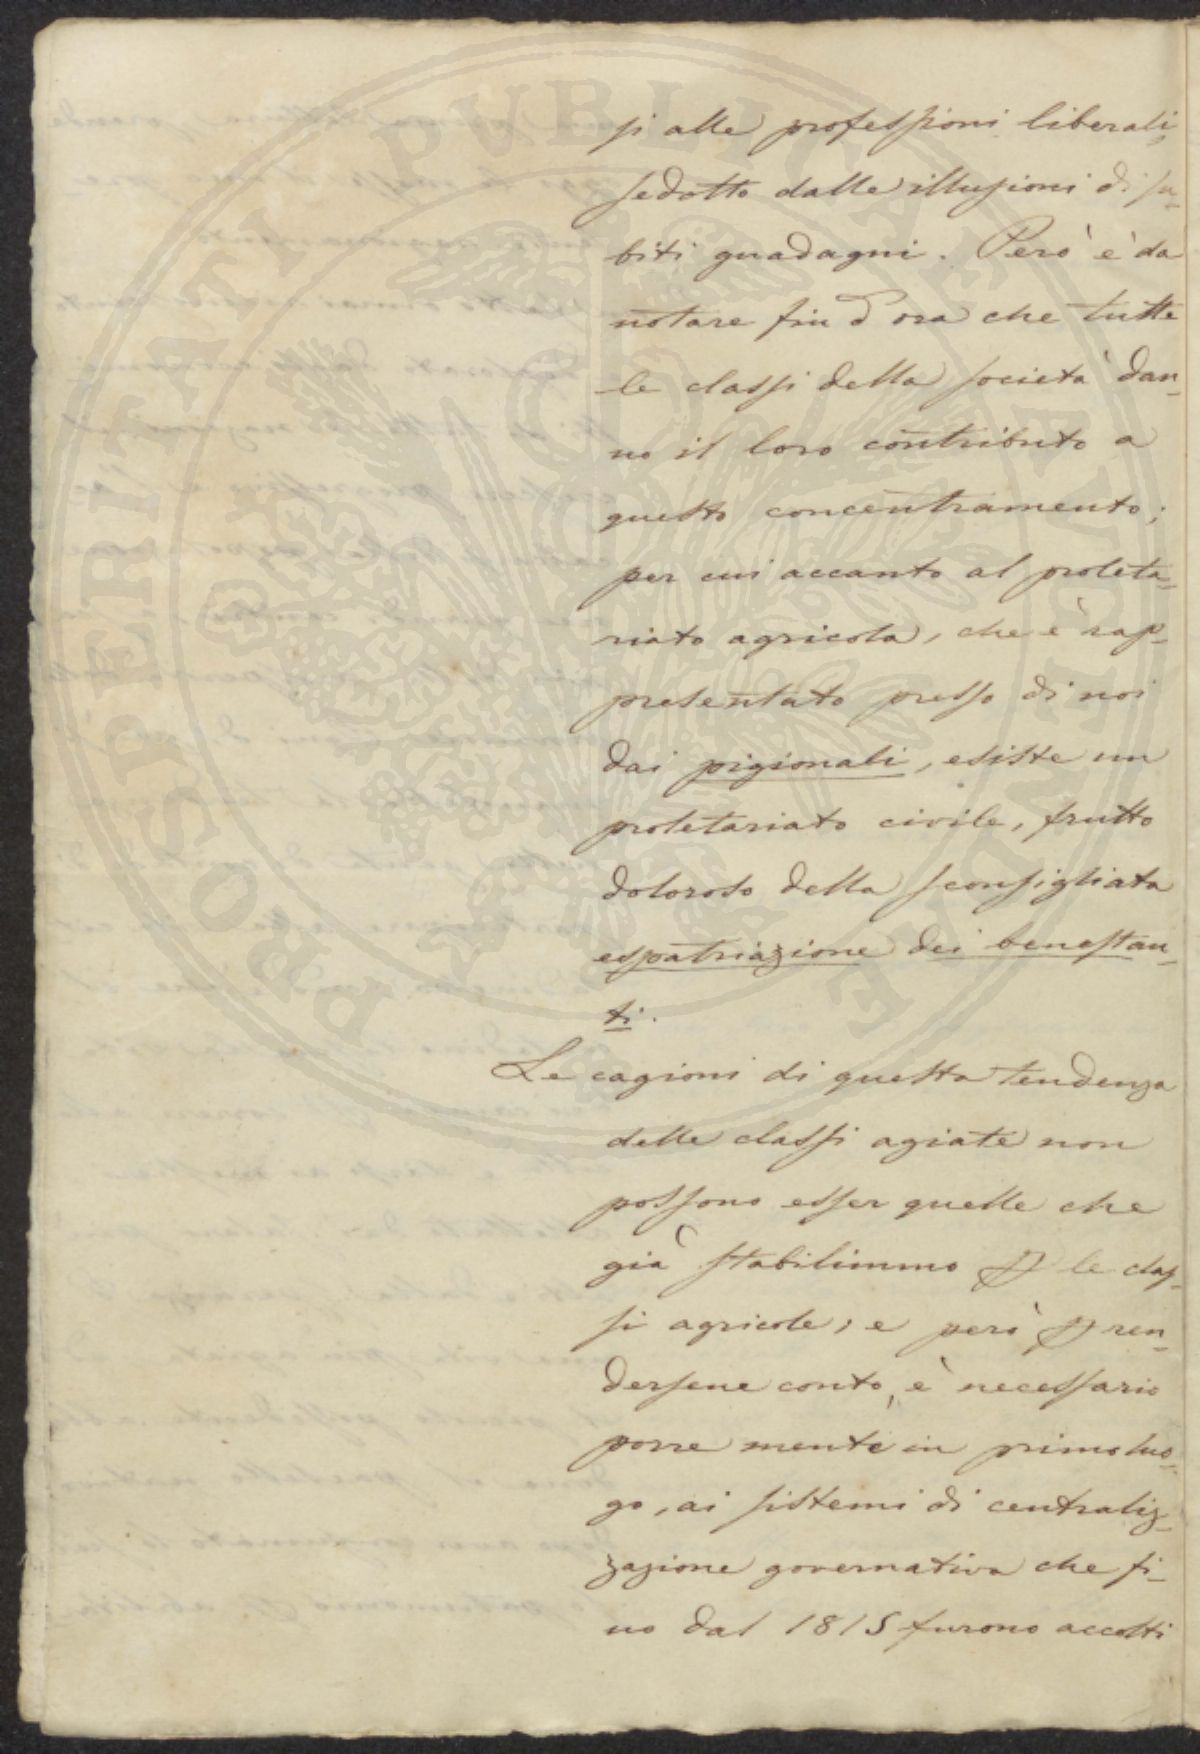 si alle professioni liberali,
sedotto dalle illusioni di su-
biti guadagni. Però è da
notare fin d'ora che tutte
le classi della società dan-
no il loro contributo a
questo concentramento;
per cui accanto al proleta-
riato agricola, che è rap-
presentato presso di noi
dai pigionali, esiste un
proletariato civile, frutto
doloroso della sconsigliata
espatriazione dei benestan-
ti.
Le cagioni di questa tendenza
delle classi agiate non
possono esser quelle che
già stabilimmo p le clas-
si agricole; e però p ren-
dersene conto, è necessario
porre mente in primo luo-
go, ai sistemi di centraliz-
zazione governativa che fi-
no dal 1815 furono accolti
PROSPERITATI PUBLICAE AUGENDAE